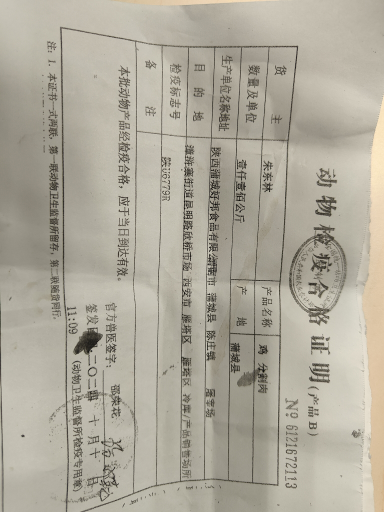 动物检疫合格证明(产品 B)
№ 6121672113
货 主 朱东林 产品名称 鸡 分割肉
数量及单位 壹仟壹佰公斤 产 地 蒲城县
生产单位名称地址 陕西蒲城好邦食品有限 蒲城县 陈庄镇 屠宰场
目 的 地 漳浒寨街道昆明路欣桥市场 西安市 雁塔区 雁塔区 冷库/产品销售场所
检疫标志号 陕06779R
备 注
本批动物产品经检疫合格，应于当日到达有效。
官方兽医签字：
签发日 二〇二 十月十日
11:09 (动物卫生监督所检疫专用章)
注：1. 本证书一式两联，第一联动物卫生监督所留存，第二联随货同行。